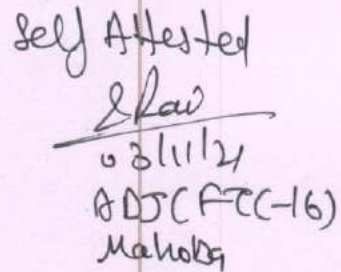 Self Attested
03/11/21
ADJ(FTC-16)
Mahoba